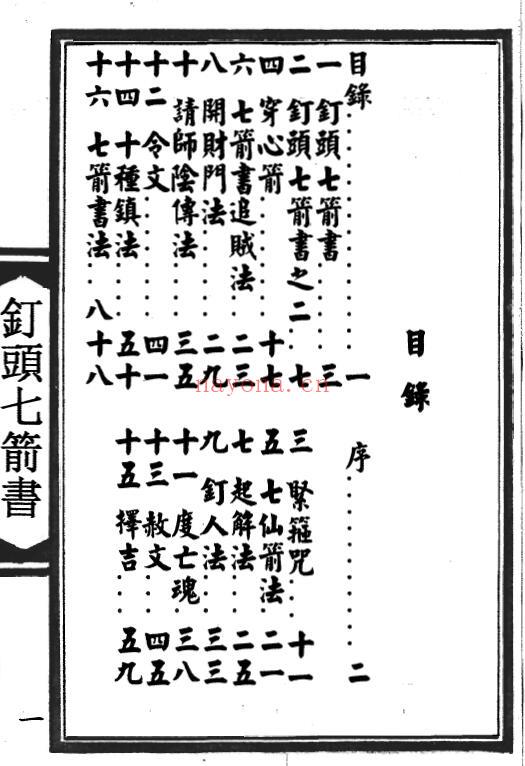 目錄
目錄……一 序……二
一 釘頭七箭書……三
二 釘頭七箭書之二……七 三 緊箍咒……十一
四 穿心箭……十七 五 七仙箭法……二一
六 七箭書追賊法……二三 七 起解法……二五
八 開財門法……二九 九 釘人法……三三
十 請師陰傳法……三五 十一 度亡魂……三八
十二 令文……四一 十三 赦文……四五
十四 十種鎮法……五十 十五 擇吉……五九
十六 七箭書法……八十八
釘頭七箭書
一
nayona.cn